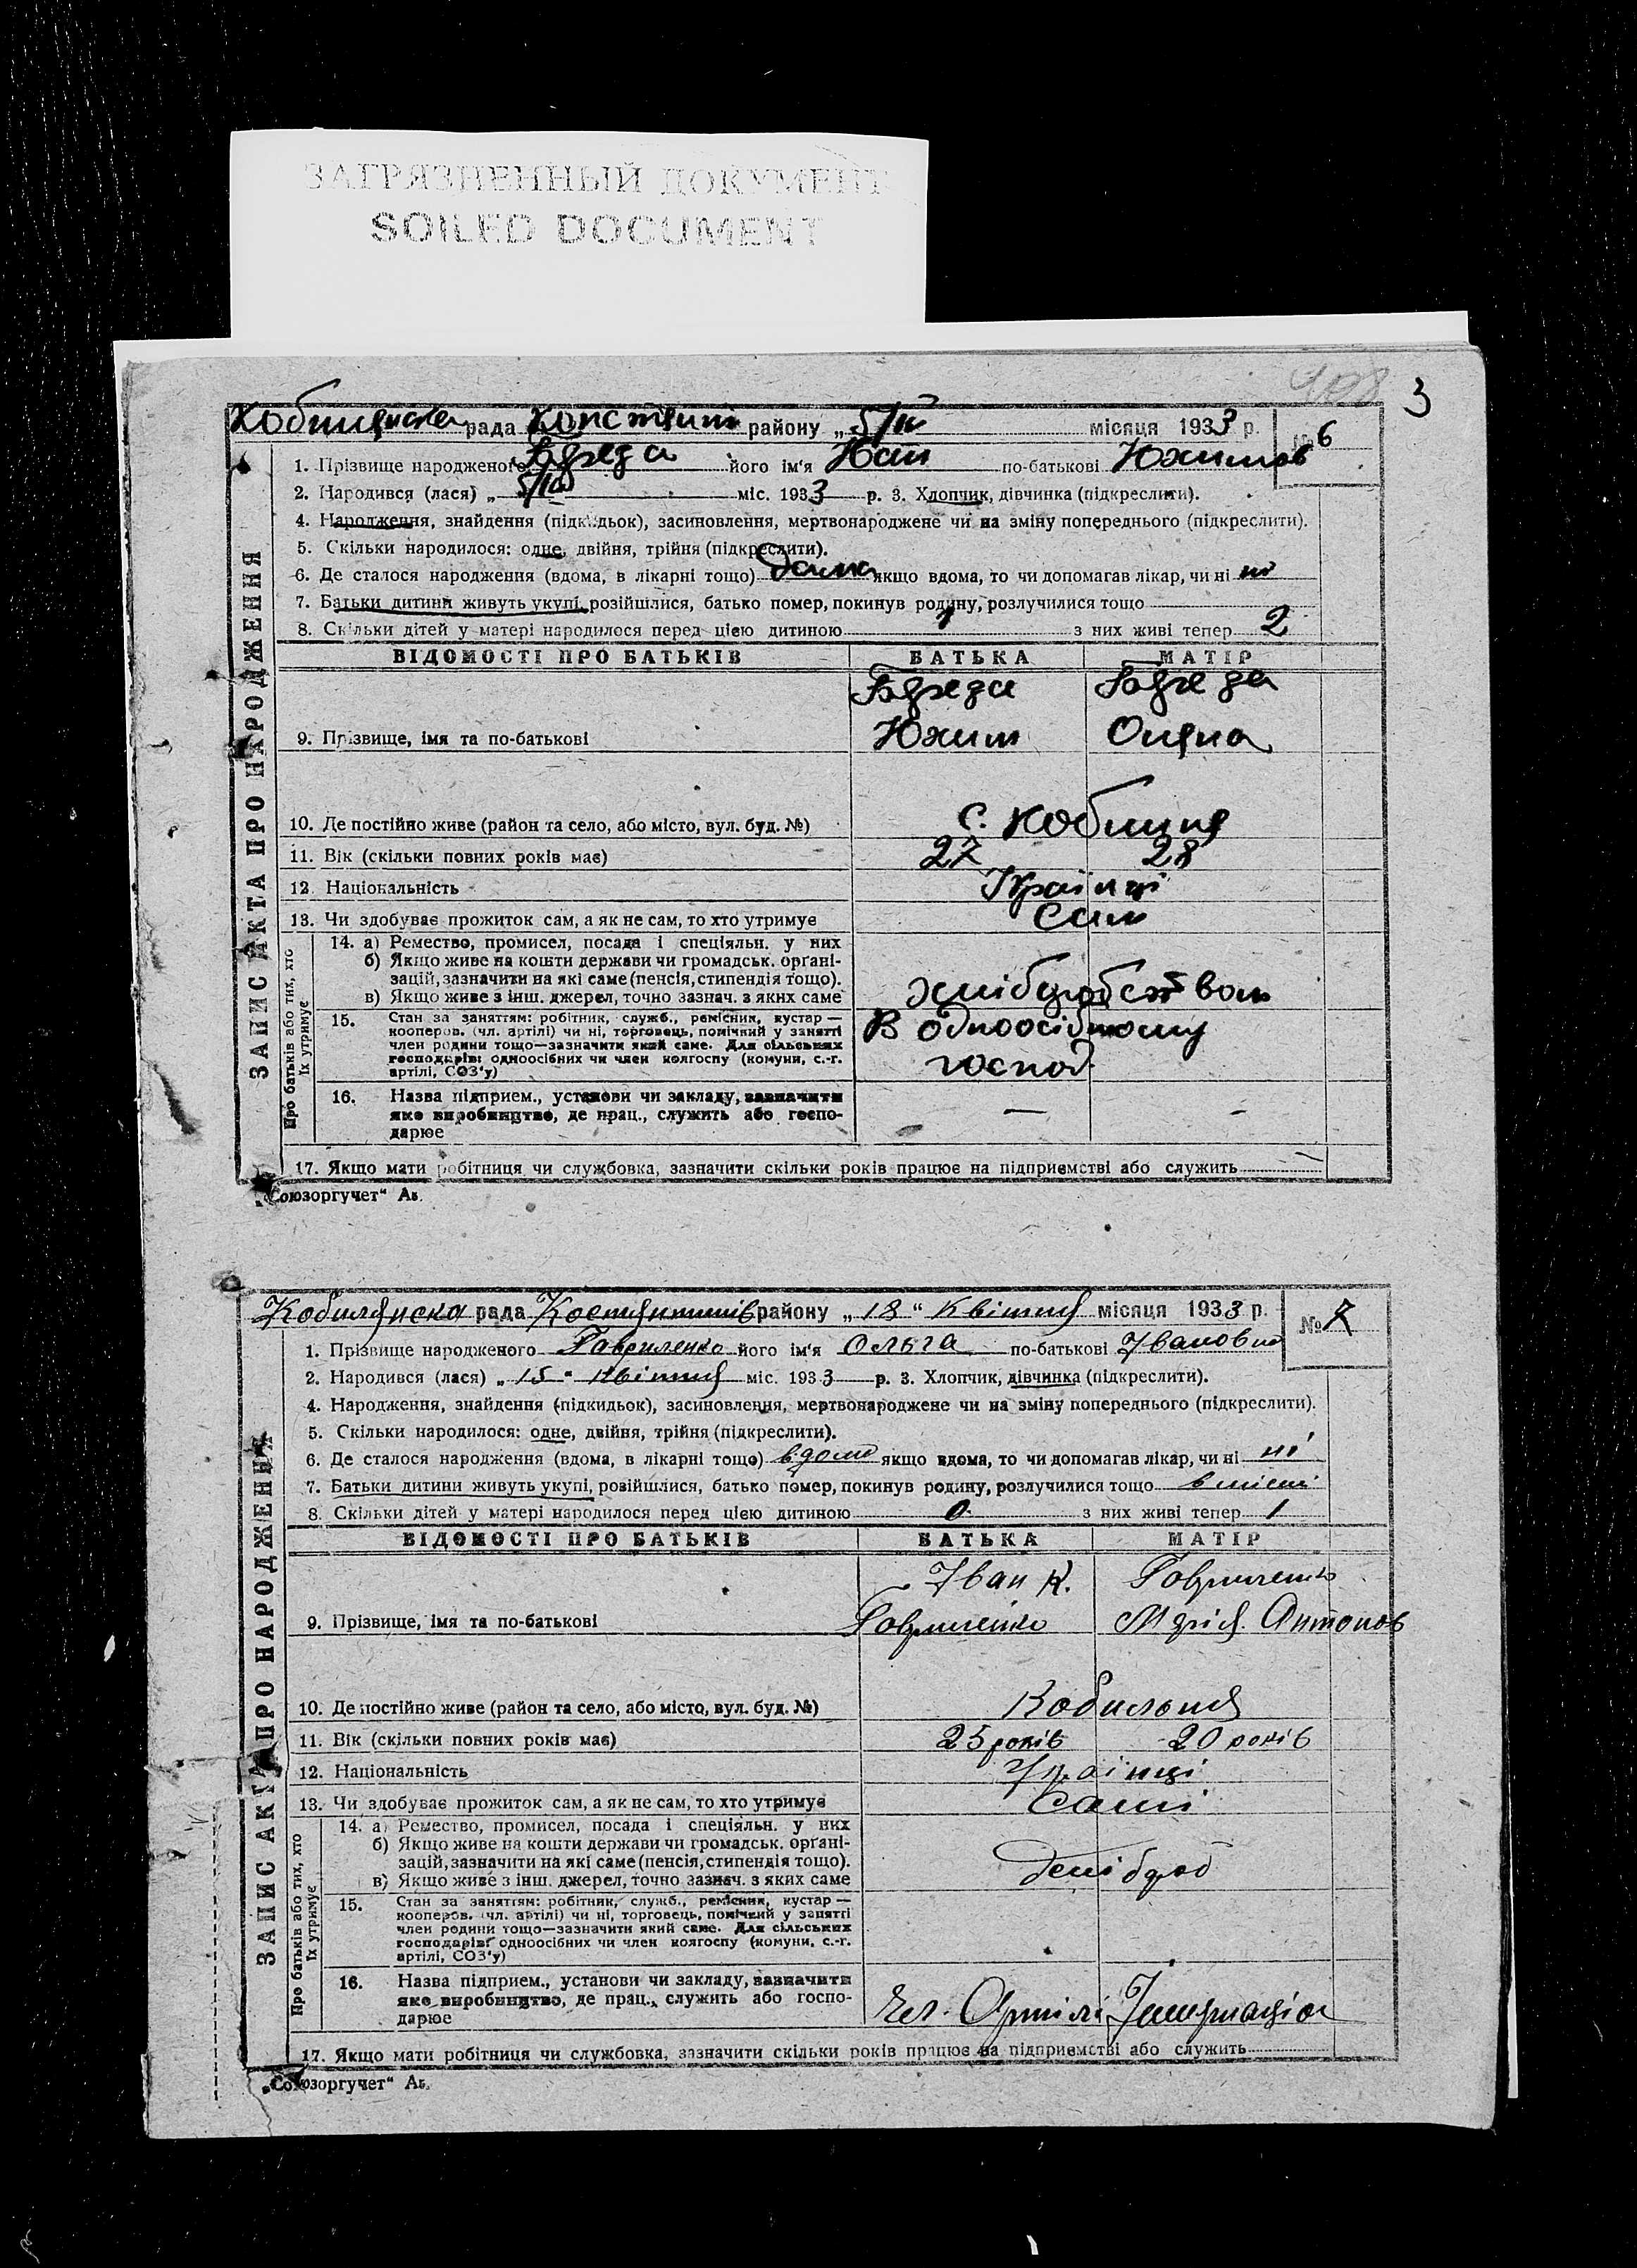 ЗАГРЯЗНЕННЫЙ ДОКУМЕНТ
SOILED DOCUMENT
3
рада району „ 5/III місяця 1933 р. № 6
1. Прізвище народженого його ім'я по-батькові Юхимов
2. Народився (лася) „ 5/III міс. 1933 р. 3. Хлопчик, дівчинка (підкреслити).
4. Народження, знайдення (підкидьок), засиновлення, мертвонароджене чи на зміну попереднього (підкреслити).
5. Скільки народилося: одне, двійня, трійня (підкреслити).
6. Де сталося народження (вдома, в лікарні тощо) дома якщо вдома, то чи допомагав лікар, чи ні ні
7. Батьки дитини живуть укупі, розійшлися, батько помер, покинув родину, розлучилися тощо
8. Скільки дітей у матері народилося перед цією дитиною 1 з них живі тепер 2
ВІДОМОСТІ ПРО БАТЬКІВ БАТЬКА МАТІР
9. Прізвище, імя та по-батькові Юхим
10. Де постійно живе (район та село, або місто, вул. буд. №) с.
11. Вік (скільки повних років має) 27 28
12 Національність Українці
13. Чи здобуває прожиток сам, а як не сам, то хто утримує Сам
14. а) Ремество, промисел, посада і спеціяльн. у них
б) Якщо живе на кошти держави чи громадськ. орґані-
зацій, зазначити на які саме (пенсія, стипендія тощо).
в) Якщо живе з інш. джерел, точно зазнач. з яких саме
15. Стан за заняттям: робітник, служб., ремісник, кустар —
кооперов. (чл. артілі) чи ні, торговець, помічний у занятті
член родини тощо—зазначити який саме. Для сільських
господарів: одноосібних чи член колгоспу (комуни, с.-г.
артілі, СОЗ'у)
В одноосібному
господ.
16. Назва підприєм., установи чи закладу, зазначити
яке виробництво, де прац., служить або госпо-
дарює — -
17. Якщо мати робітниця чи службовка, зазначити скільки років працює на підприємстві або служить —
ЗАПИС АКТА ПРО НАРОДЖЕННЯ
Про батьків або тих, хто
їх утримує
„Союзоргучет“ Ав.
Кобилянска рада району „ 18 “ Квітня місяця 1933 р. № 7
1. Прізвище народженого Гавриленко його ім'я Ольга по-батькові Івановна
2. Народився (лася) „ 15 “ Квітня міс. 1933 р. 3. Хлопчик, дівчинка (підкреслити).
4. Народження, знайдення (підкидьок), засиновлення, мертвонароджене чи на зміну попереднього (підкреслити).
5. Скільки народилося: одне, двійня, трійня (підкреслити).
6. Де сталося народження (вдома, в лікарні тощо) вдома якщо вдома, то чи допомагав лікар, чи ні ні
7. Батьки дитини живуть укупі, розійшлися, батько помер, покинув родину, розлучилися тощо
8. Скільки дітей у матері народилося перед цією дитиною 0 з них живі тепер 1
ВІДОМОСТІ ПРО БАТЬКІВ БАТЬКА МАТІР
Іван К. Гавриленко
9. Прізвище, імя та по-батькові Гавриленко Марія Антонов
10. Де постійно живе (район та село, або місто, вул. буд. №)
11. Вік (скільки повних років має) 25 років 20 років
12. Національність Українці
13. Чи здобуває прожиток сам, а як не сам, то хто утримує Самі
14. а) Ремество, промисел, посада і спеціяльн. у них
б) Якщо живе на кошти держави чи громадськ. орґані-
зацій, зазначити на які саме (пенсія, стипендія тощо).
в) Якщо живе з інш. джерел, точно зазнач. з яких саме
15. Стан за заняттям: робітник, служб., ремісник, кустар —
кооперов. (чл. артілі) чи ні, торговець, помічний у занятті
член родини тощо—зазначити який саме. Для сільських
господарів: одноосібних чи член колгоспу (комуни, с.-г.
артілі, СОЗ'у)
16. Назва підприєм., установи чи закладу, зазначити
яке виробництво, де прац., служить або госпо-
дарює Чл. Артілі
17. Якщо мати робітниця чи службовка, зазначити скільки років працює на підприємстві або служить
ЗАПИС АКТА ПРО НАРОДЖЕННЯ
Про батьків або тих, хто
їх утримує
„Союзоргучет“ Ав.